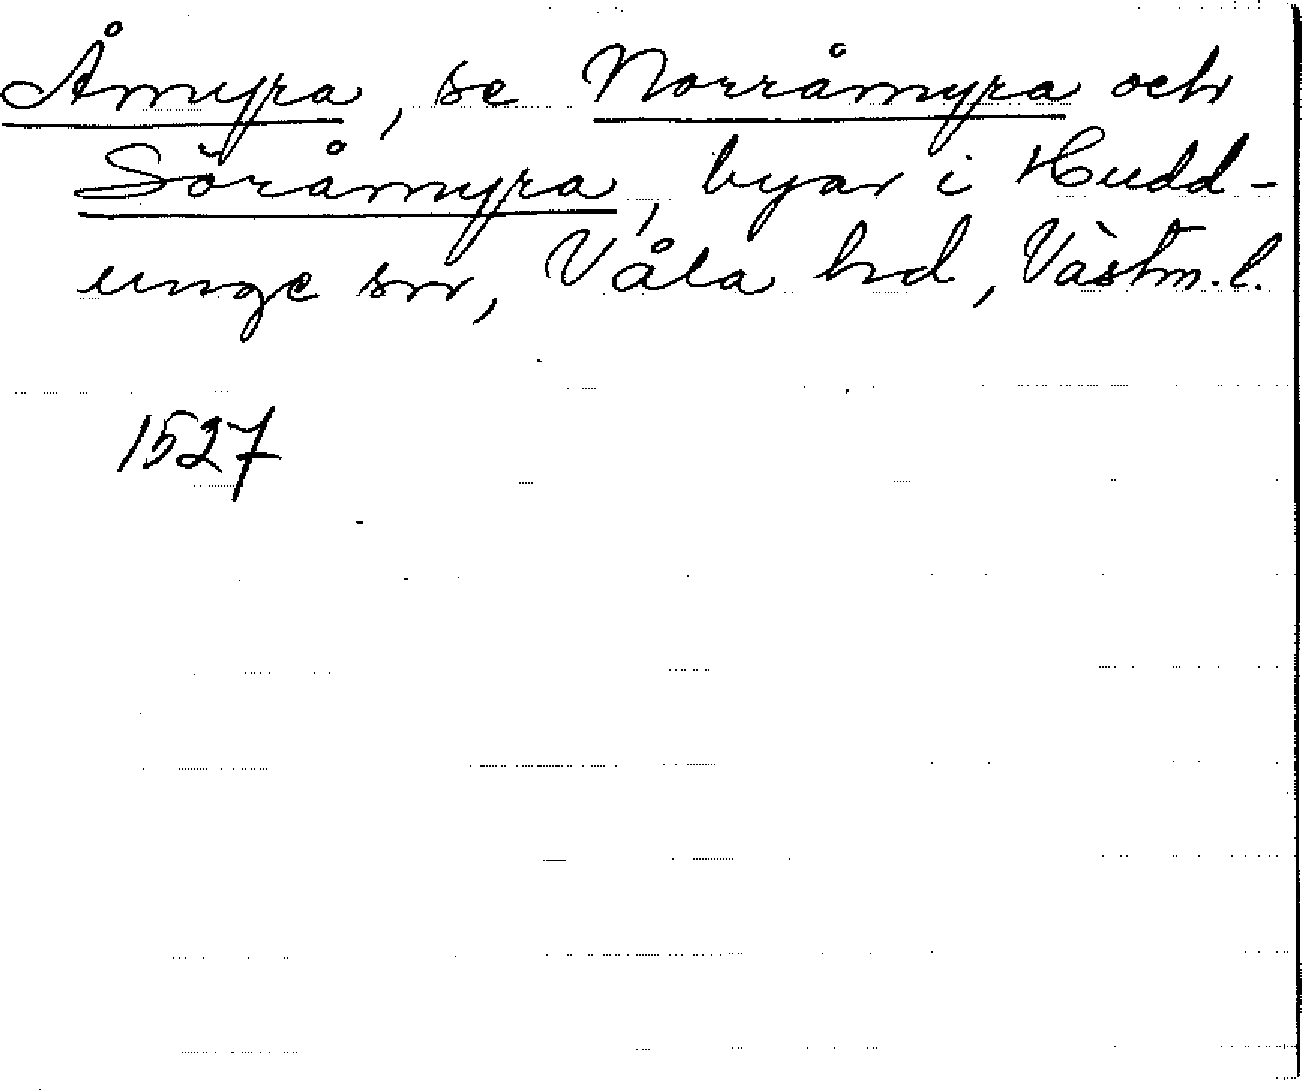 Åmyra, se Norråmyra och
Söråmyra, byar i Hudd-
unge sn, Våla hd, Västm. l.
1527